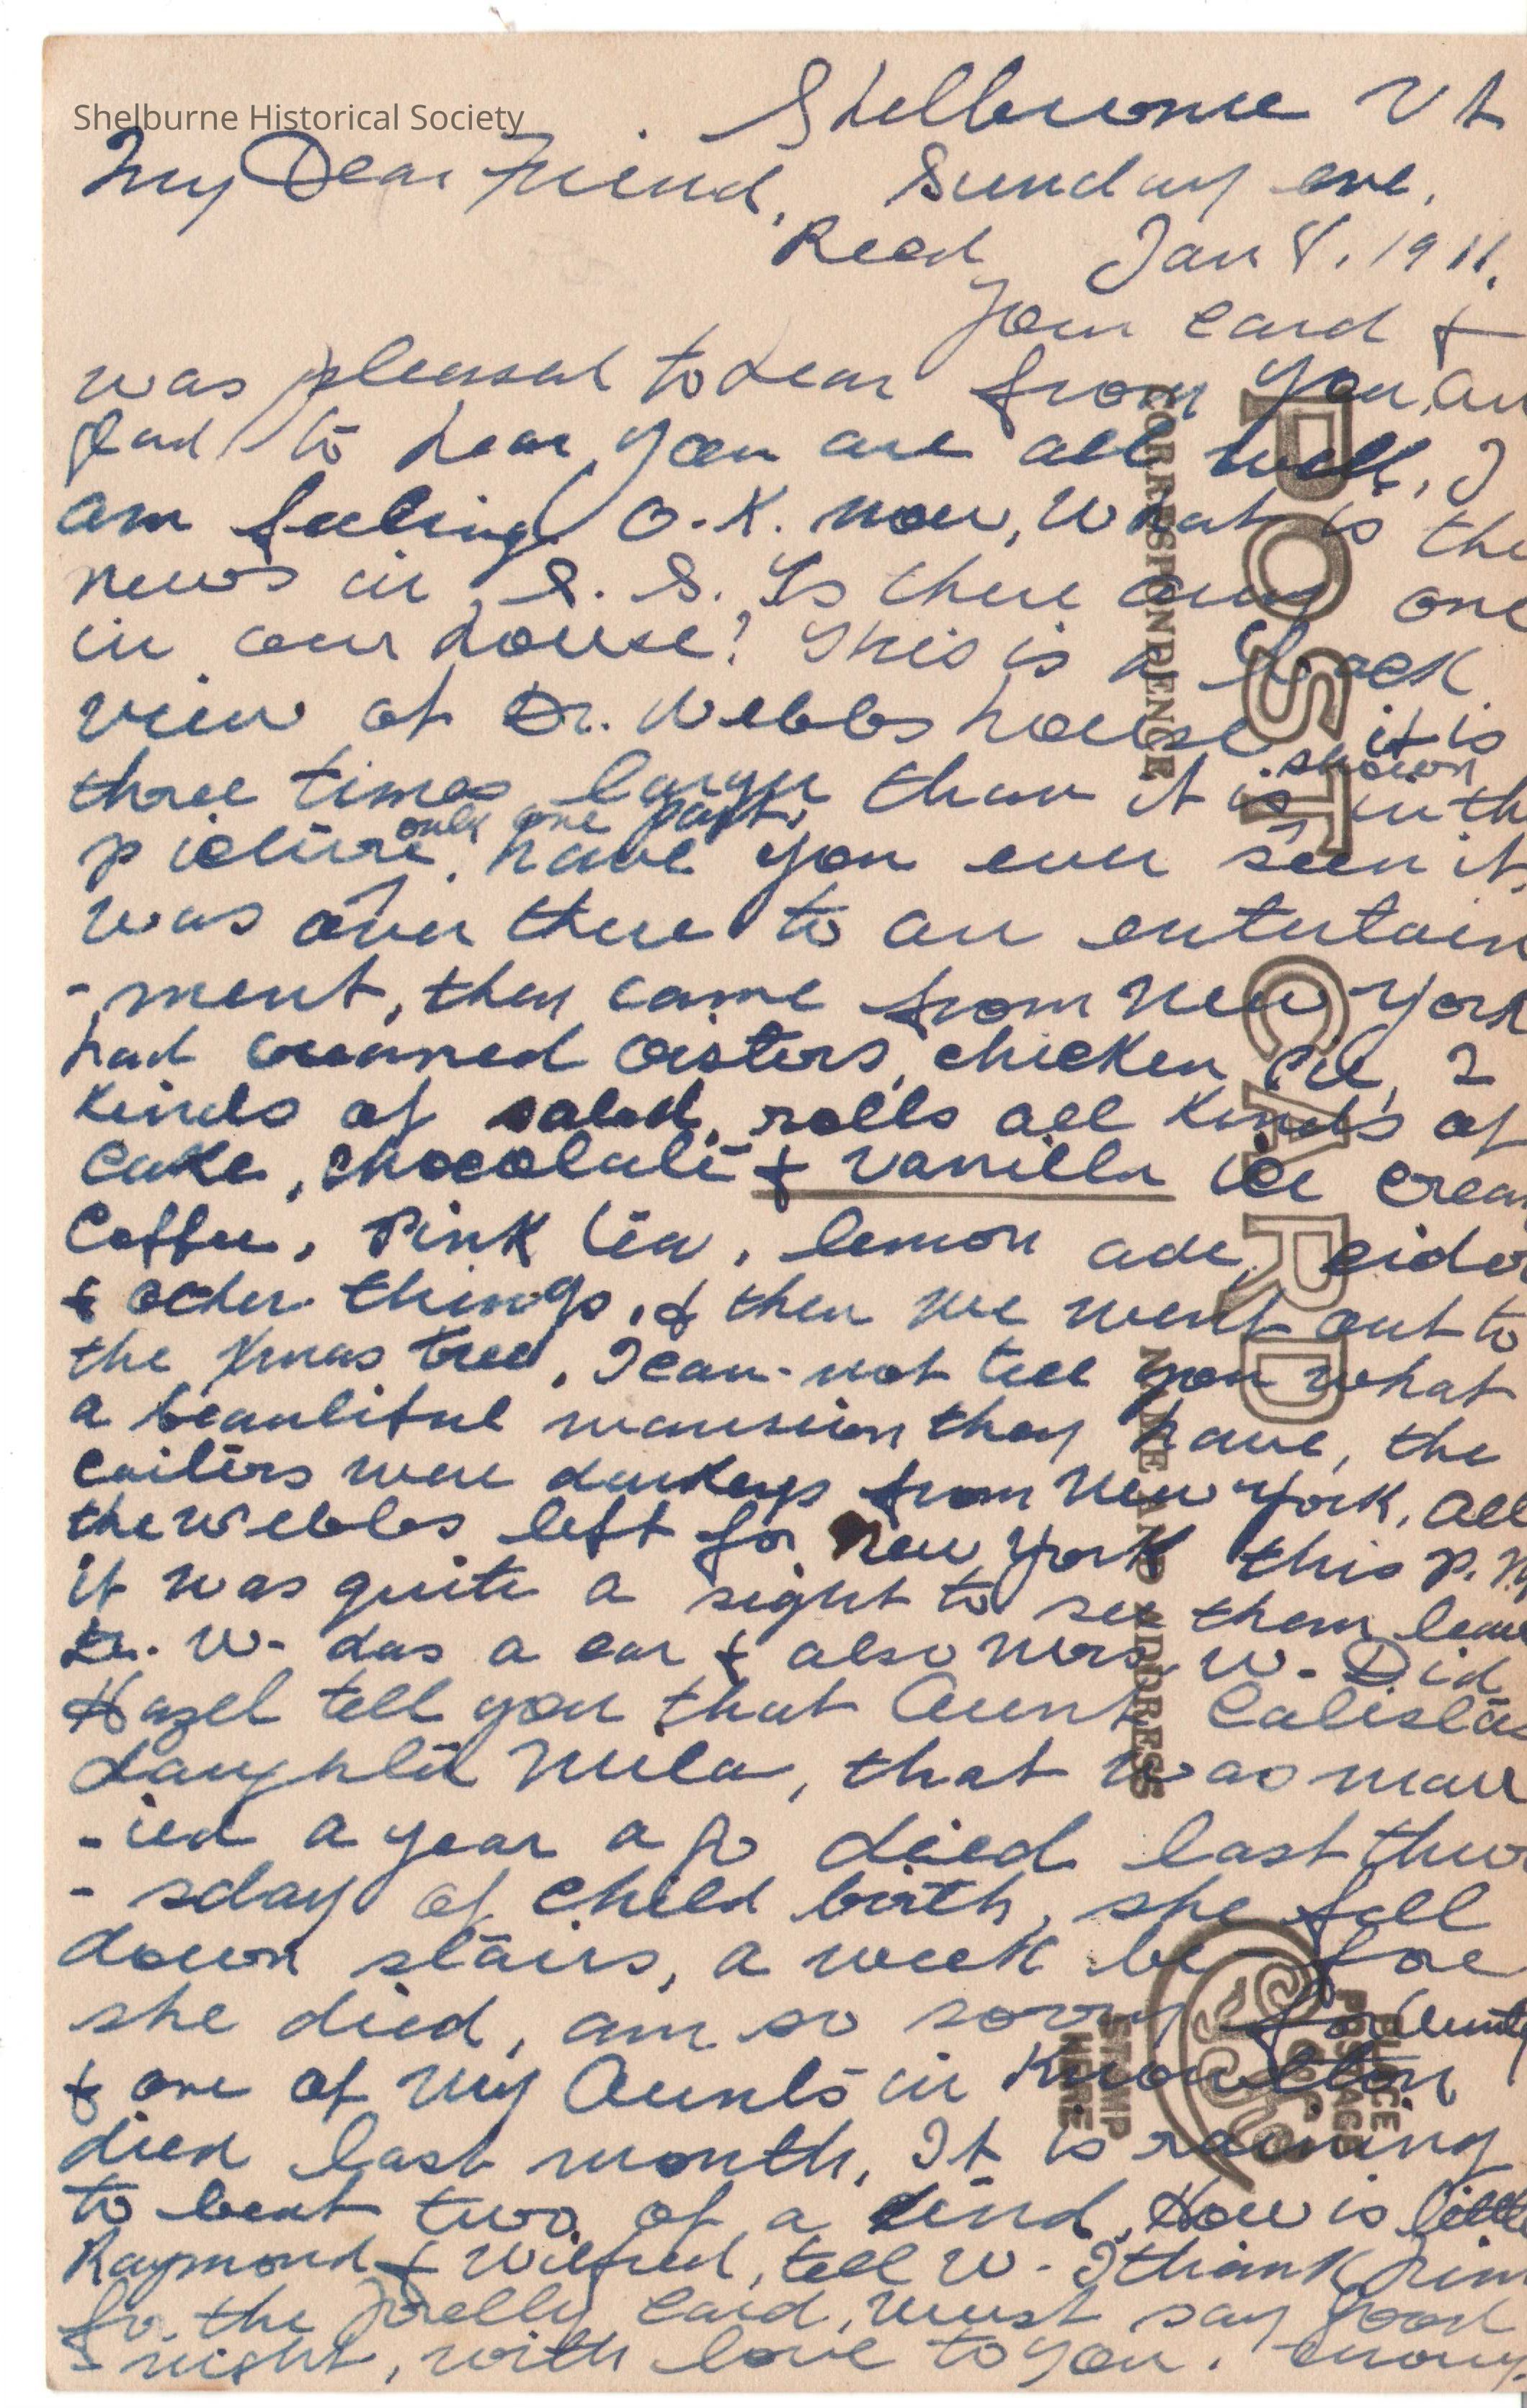 Shelburne Historical Society
Shelburne Vt
My Dear Friend, Sunday eve,
Recd Jan 8, 1911.
your card &
was pleased to hear from you, an
glad to hear you are all well, I
am feeling O.K. now, What is the
news in S. S. Is there any one
in our house? This is a back
view of Dr. Webbs house it is
three times larger than it is shown in th
picture, only one part, have you ever seen it,
was over there to an entertain
-ment, they came from New York
had creamed oisters, chicken pie, 2
kinds of salad, rolls all kinds of
cake, chocolate & vanilla ice cream
Coffee, Pink tea, lemon ade, cider
& other things, & then we went out to
the Xmas tree, I can-not tell you what
a beautiful mansion they have, the
caiters were darkeys from New York, all
the Webbs left for New York this P.M
it was quite a sight to see them leave
Dr. W- has a car & also Mrs. W- Did
Hazel tell you that Aunt Calistas
daughter Mila, that was marr
-ied a year ago died last thur
-sday of child birth, she fell
down stairs, a week be-fore
she died, am so sorry for Aunty
& one of my Aunts in Knowlton
died last month, It is raining
to beat two of a kind, How is little
Raymond & Wilfred, tell W- I thank him
for the pretty card, must say good
-night, with love to you.
POST CARD
CORRESPONDENCE
NAME AND ADDRESS
PLACE
POSTAGE
STAMP
HERE